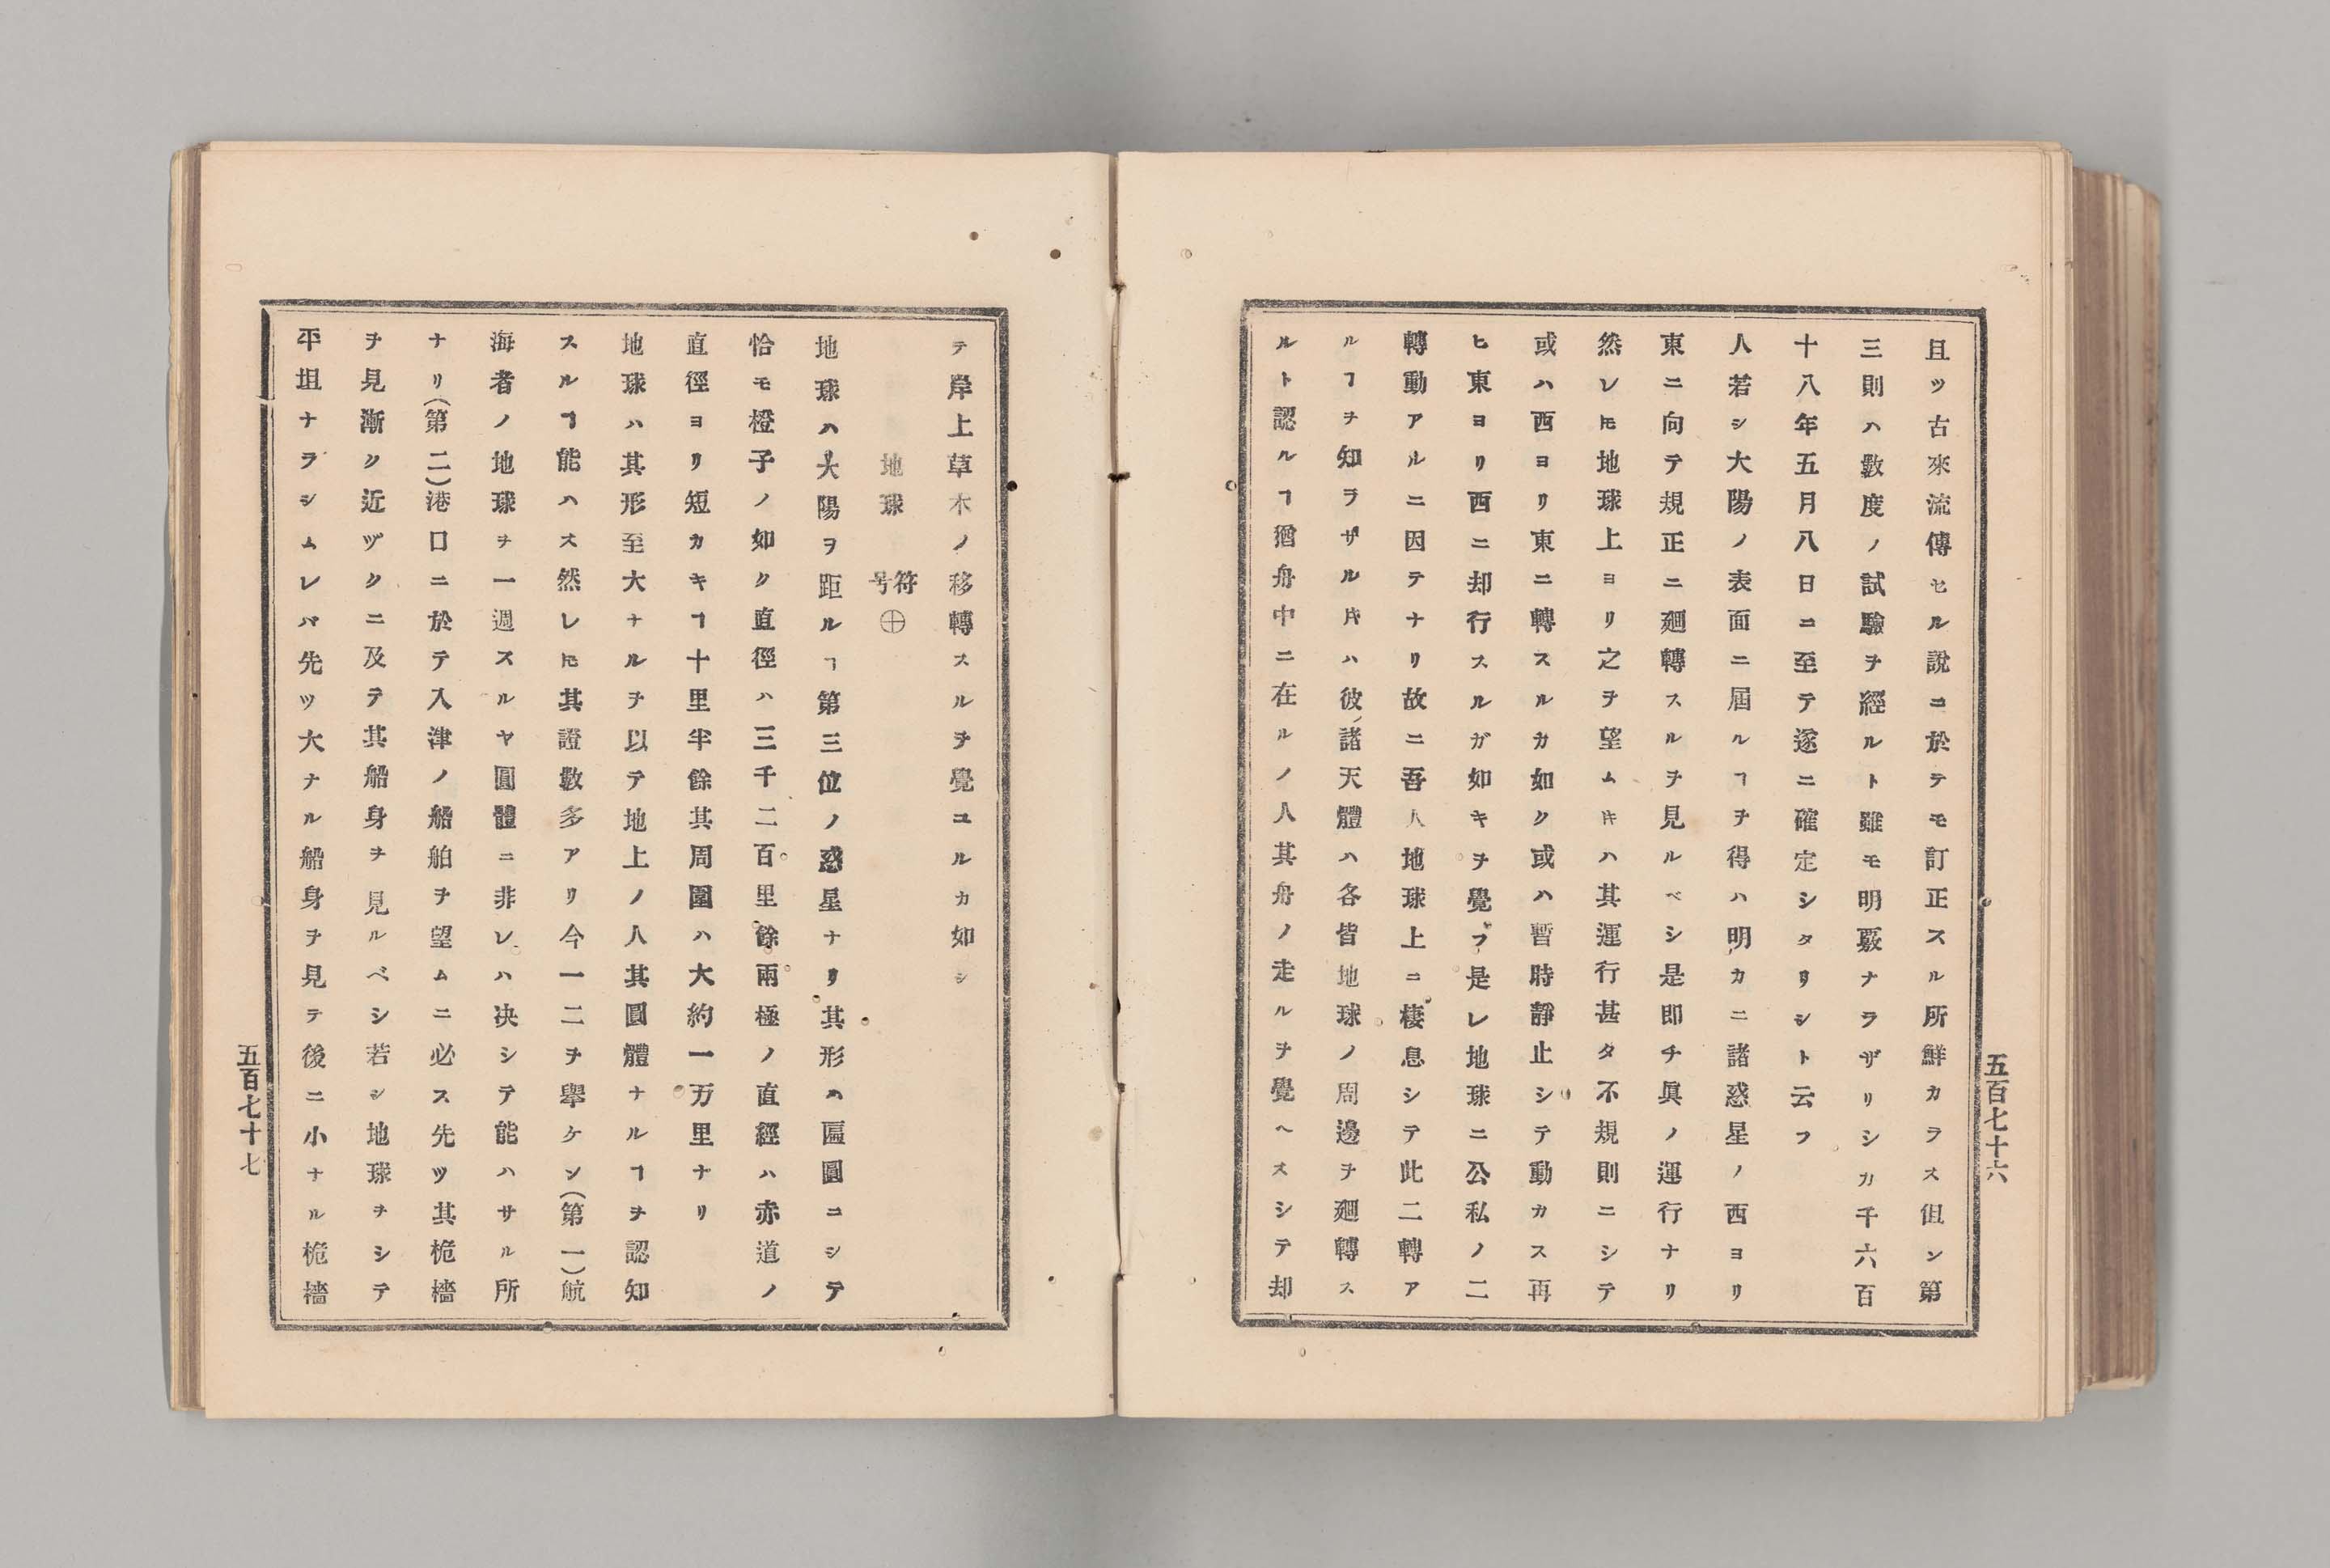 且ツ古來流傳セル說ニ於テモ訂正スル所鮮カラス徂ン第
三則ハ數度ノ試驗ヲ經ルト雖モ明覈ナラザリシカ千六百
十八年五月八日ニ至テ遂ニ確定シタリシト云フ
人若シ大陽ノ表面ニ屆ルヿヲ得ハ明カニ諸惑星ノ西ヨリ
東ニ向テ規正ニ廻轉スルヲ見ルベシ是卽チ眞ノ運行ナリ
然レ𪜈地球上ヨリ之ヲ望ムキハ其運行甚タ不規則ニシテ
或ハ西ヨリ東ニ轉スルカ如ク或ハ暫時靜止シテ動カス再
ヒ東ヨリ西ニ却行スルガ如キヲ覺フ是レ地球ニ公私ノ二
轉動アルニ因テナリ故ニ吾人地球上ニ棲息シテ此二轉ア
ルヿヲ知ラザルキハ彼諸天體ハ各皆地球ノ周邊ヲ廻轉ス
ルト認ルヿ猶舟中ニ在ルノ人其舟ノ走ルヲ覺ヘスシテ却
五百七十六
テ岸上草木ノ移轉スルヲ覺ユルカ如シ
地球 符号 ⊕
地球ハ大陽ヲ距ルヿ第三位ノ惑星ナリ其形ハ匾圓ニシテ
恰モ橙子ノ如ク直徑ハ三千二百里餘兩極ノ直經ハ赤道ノ
直徑ヨリ短カキヿ十里半餘其周圍ハ大約一万里ナリ
地球ハ其形至大ナルヲ以テ地上ノ人其圓體ナルヿヲ認知
スルヿ能ハス然レ𪜈其證數多アリ今一二ヲ擧ケン(第一)航
海者ノ地球ヲ一週スルヤ圓體ニ非レハ决シテ能ハサル所
ナリ(第二)港口ニ於テ入津ノ船舶ヲ望ムニ必ス先ツ其桅檣
ヲ見漸ク近ヅクニ及テ其船身ヲ見ルベシ若シ地球ヲシテ
平坦ナラシムレバ先ツ大ナル船身ヲ見テ後ニ小ナル桅檣
五百七十七